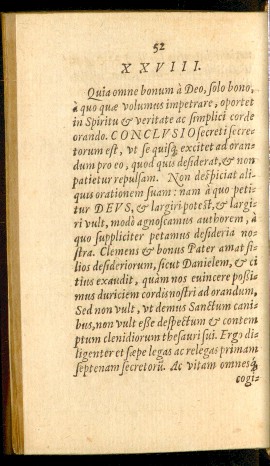 52
XXVIII.
Quia omne bonum à Deo, solo bono,
à quo quæ volumus impetrare, oportet
in Spiritu & veritate ac simplici corde
orando. CONCLVSIO secreti secre-
torum est, vt se quisq; excitet ad oran-
dum pro eo, quod quis desiderat, & non
patietur repulsam. Non despiciat ali-
quis orationem suam: nam à quo peti-
tur DEVS, & largiri potest, & largi-
ri vult, modò agnoscamus authorem, à
quo suppliciter petamus desideria no-
stra. Clemens & bonus Pater amat fi-
lios desideriorum, sicut Danielem, & ci
tius exaudit, quàm nos euincere possi-
mus duriciem cordis nostri ad orandum,
Sed non vult, vt demus Sanctum cani-
bus, non vult esse despectum & contem
ptum clenidiorum thesauri sui. Ergo di-
ligenter et sæpe legas ac relegas primam
septenam secretorũ. Ac vitam omnesq;
cogi-